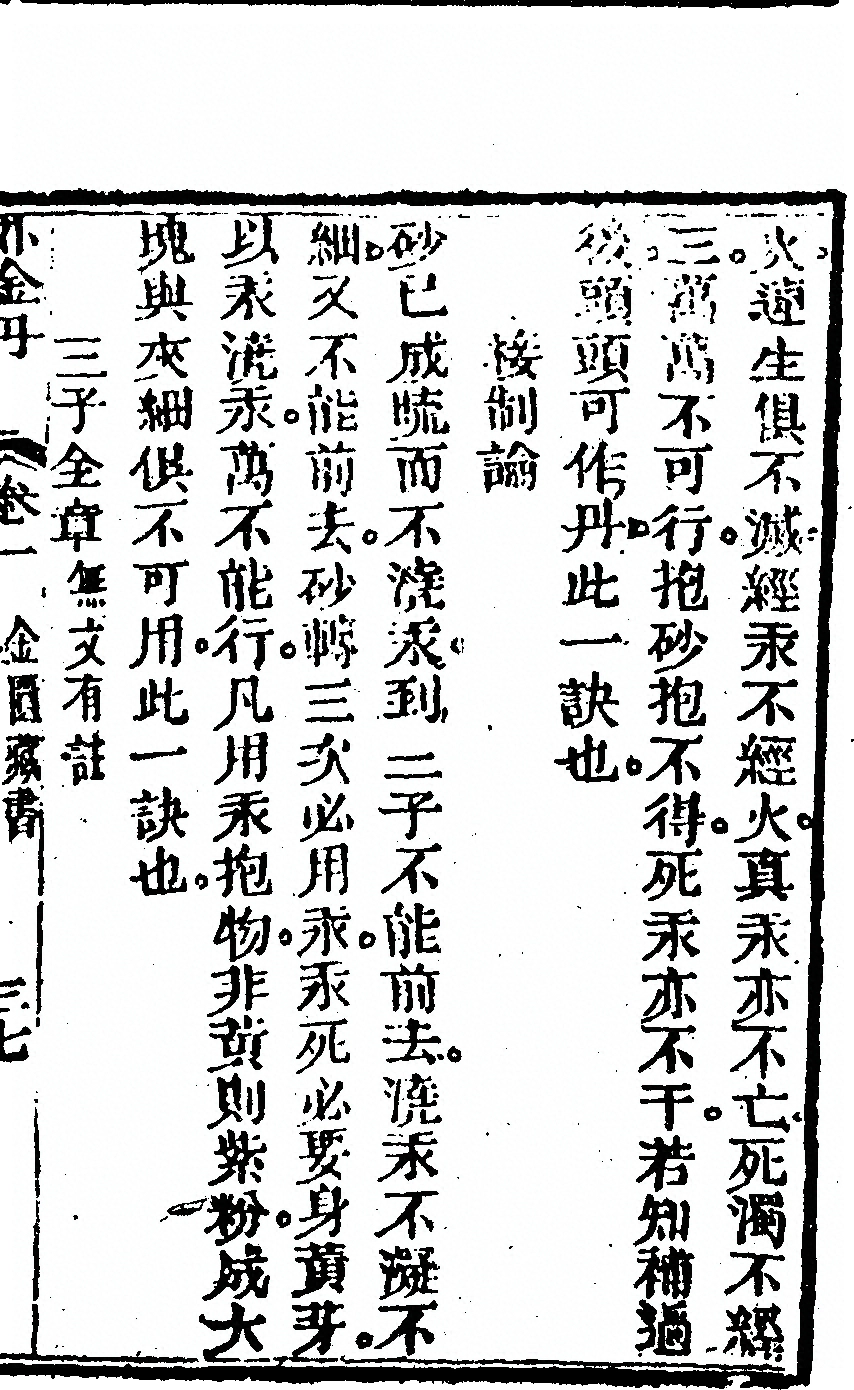 火遞生俱不滅經汞不經火真汞亦不亡死濁不經
三萬萬不可行抱砂抱不得死汞亦不干若知補過
後頭頭可作丹此一訣也
接制論
砂已成硫而不澆汞到二子不能前去澆汞不凝不
細又不能前去砂轉三次必用汞汞死必要身黃芽
以汞澆汞萬不能行凡用汞抱物非黃則紫粉成大
塊與夾細俱不可用此一訣也
三子全章無文有註
外金丹 卷一 金固藏書 三七